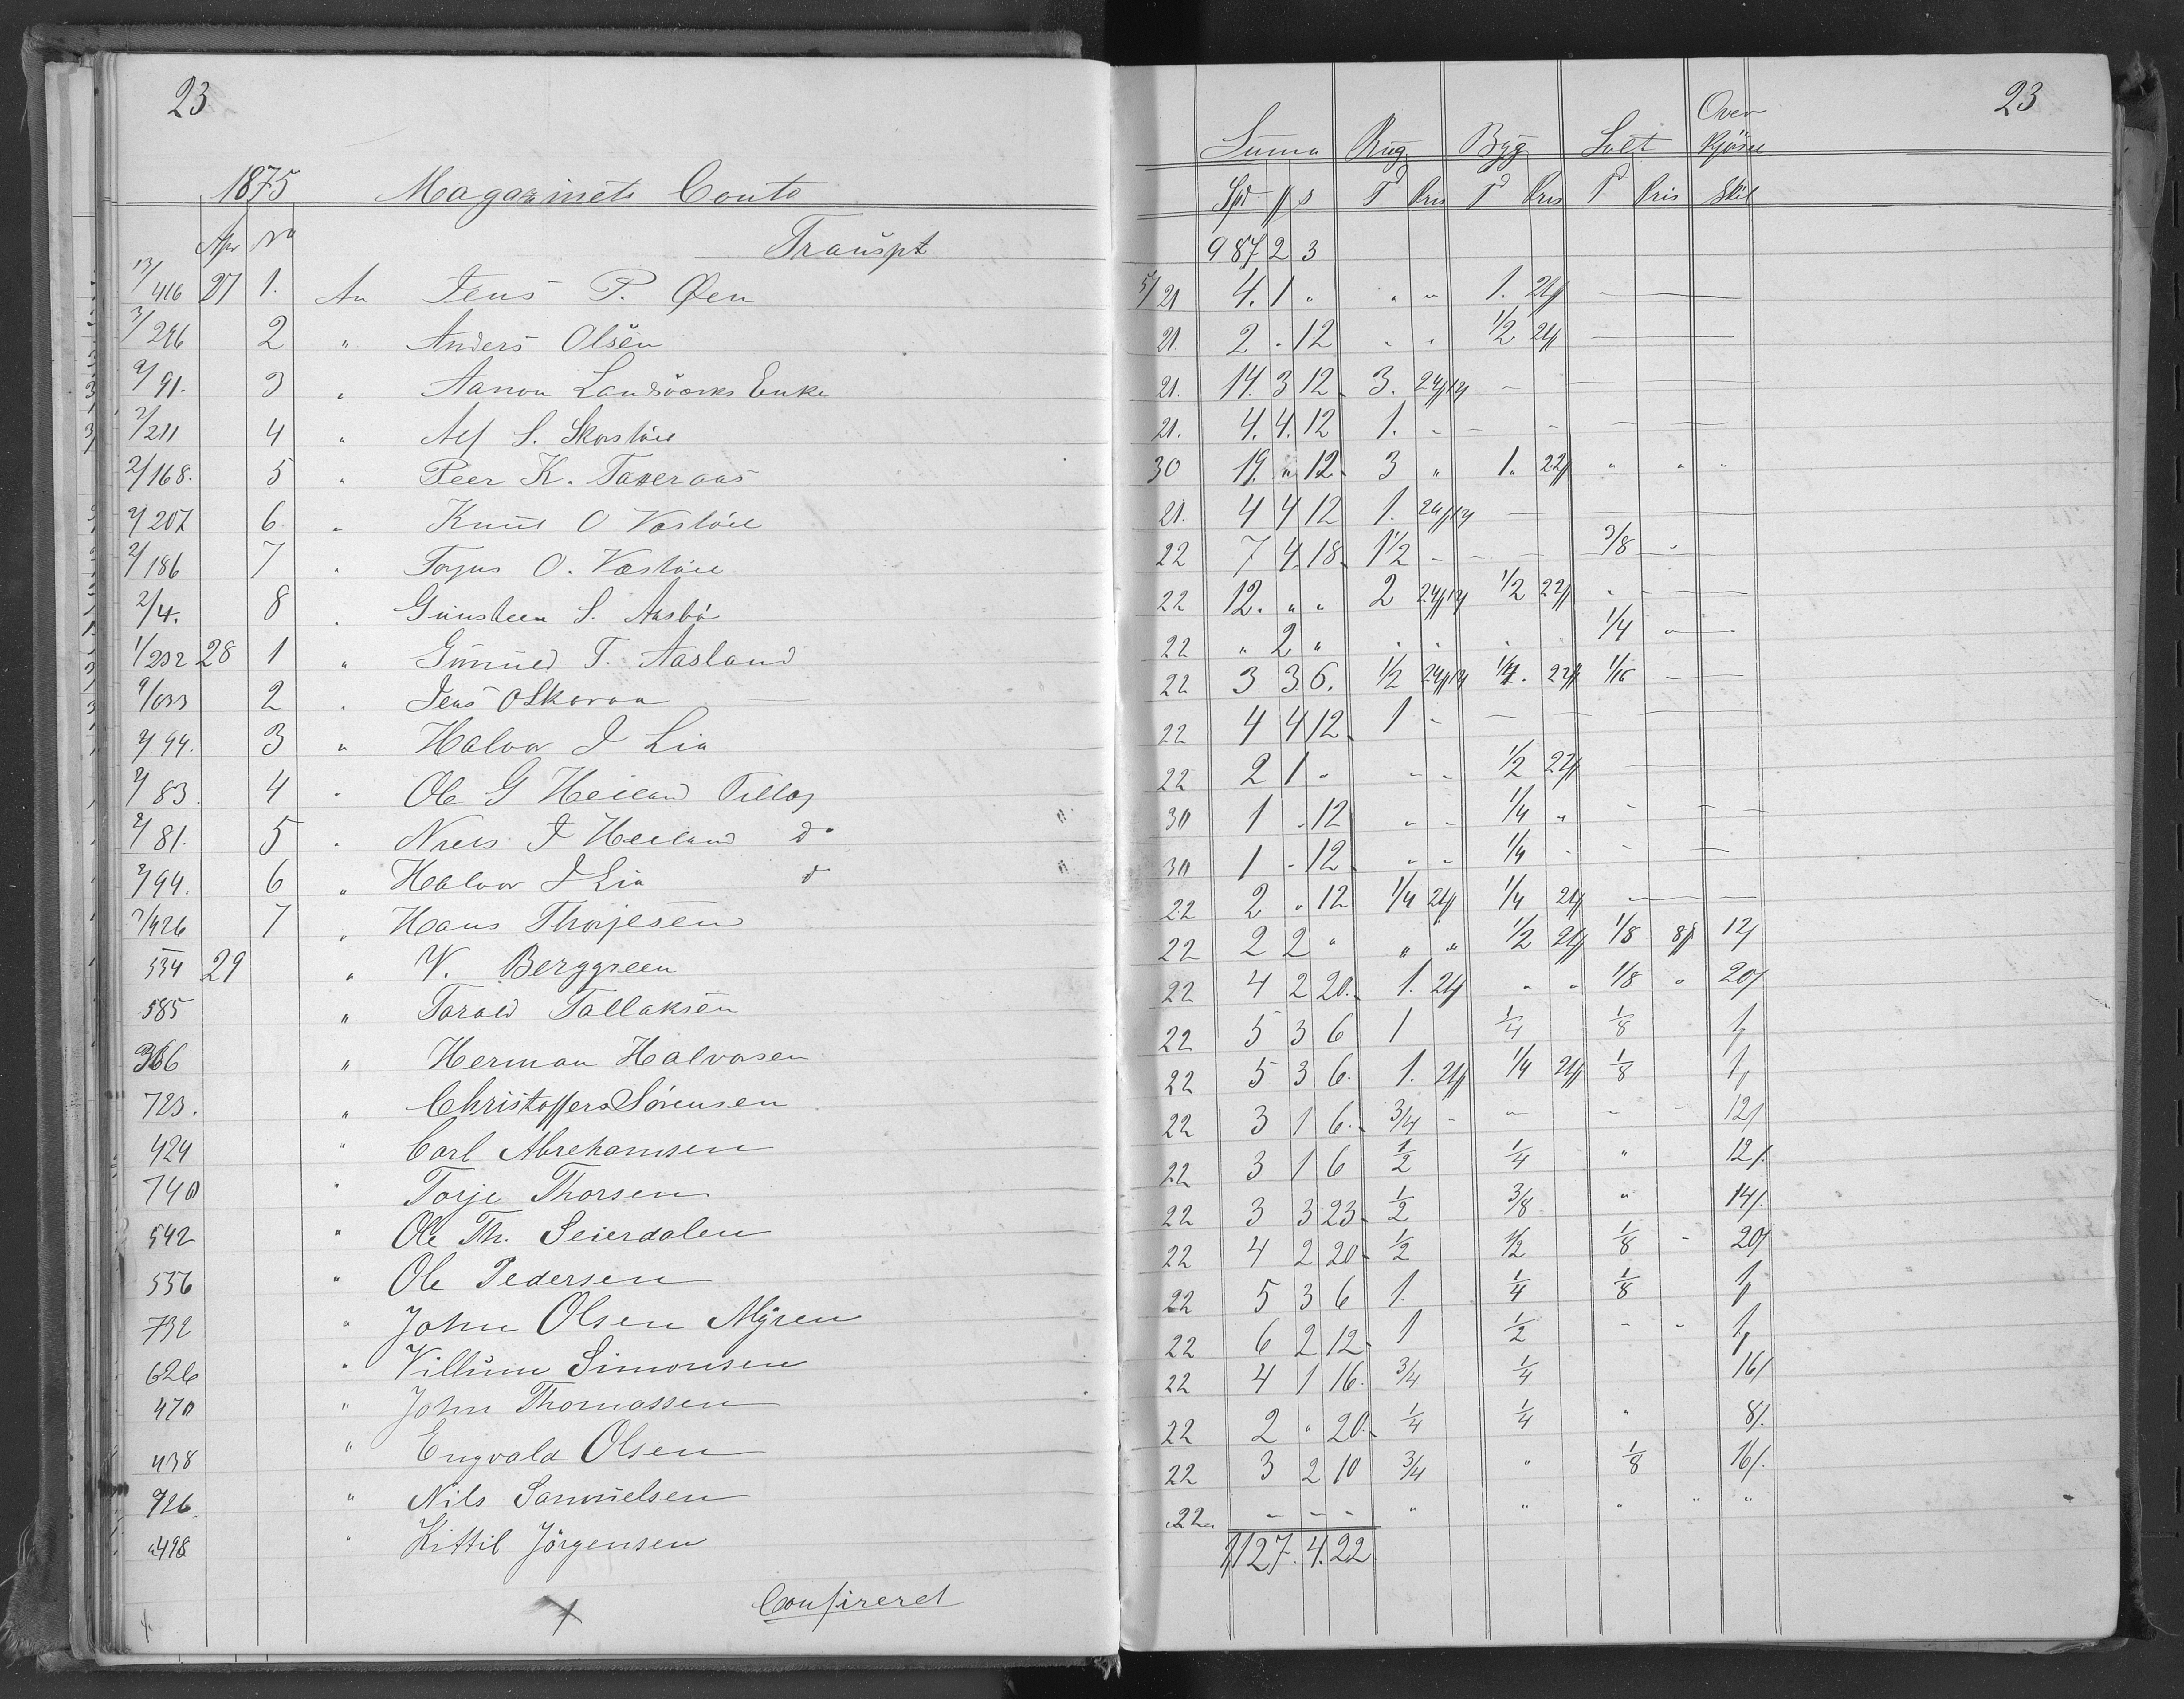 23
1875 Magazinets Conto
Apr No Transpt
13/416 27 1. An Jens P. Øen
3/246 2 " Anders Olsen
2/91. 3 " Aanon Landsværks Enke
2/211 4 " Alf S.
2/168. 5 " Peer K. Taxeraas
2/207 6 " Knut O
2/186 7 " Torjus O.
2/4. 8 " Gunsteen S. Aasbø
1/232 28 1 " Gunuld T. Aasland
2 " Jens O Skoraa
2/94. 3 " Halvor J Lia
2/83. 4 " Ole G Heiland Tillæg
2/81. 5 " Niels J Heiland do
2/94. 6 " Halvor J Lia d
7/426 7 " Hans Thorjesen
534 29 " V. Berggreen
585 " Tarald Tallaksen
366 " Herman Halvorsen
723. " Christoffer Sørensen
424 " Carl Abrehamsen
740 " Torje Thorsen
542 " Ole Th. Seierdalen
556 " Ole Pedersen
732 " John Olsen Myren
626 " Villum Simonsen
470 " John Thomassen
438 " Engvald Olsen
726. " Nils Samuelsen
498 " Kittil Jörgensen
Confereret
23
Over
Suma Rug Byg Salt
Spd # s T Pris T Pris T Pris Skil
987 2 3
5/21 4. 1 " " " 1. 21#
21. 2 " 12 " " 1/2 21#
21. 14. 3 12 3. 24#14
21. 4. 4. 12 1. -
30 19. " 12 3 " 1. 22# " " "
21. 4 4 12 1. 24#14
22 7 4 18 1 1/2 - 3/8 -
22 12. " " 2 24#14 1/2 22# "
22 " 2 " " " 1/4 "
22 3 3 6. 1/2 24#14 1/4. 22# 1/16
22 4 4 12 1 -
22 2 1 " " " 1/2 22#
30 1 " 12 " " 1/4 "
30 1 " 12 " " 1/4 -
22 2 " 12 1/4 21# 1/4 21#
22 2 2 " " " 1/2 21# 1/8 8# 12/
22 4 2 20 1. 21# " " 1/8 " 20/
22 5 3 6 1 1/4 1/8 1#
22 5 3 6. 1. 21# 1/4 21# 1/8 1#
22 3 1 6. 3/4 - - - 12/
22 3 1 6 1/2 1/4 " 12/.
22 3 3 23 1/2 3/8 " 14/.
22 4 2 20 1/2 1/2 1/8 - 20/
22 5 3 6 1. 1/4 1/8 1#
22 6 2 12 1 1/2 - - 1#
22 4 1 16. 3/4 1/4 16/
22 2 " 20. 1/4 1/4 " 8/.
22 3 2 10 3/4 " 1/8 16/.
22 - - - " " " " "
1127. 4. 22